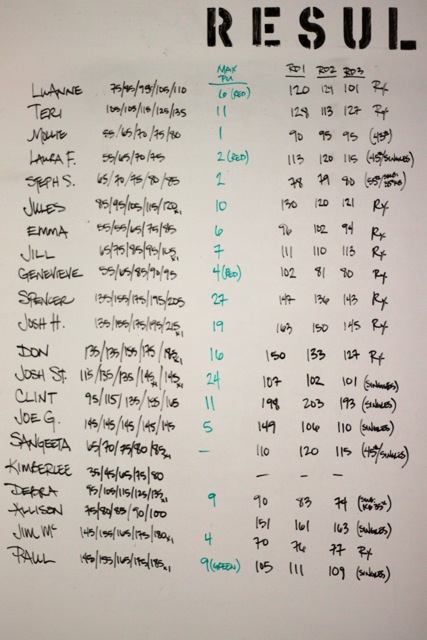 RESUL
MAX PU RD1 RD2 RD3
LUANNE 75/85/95/105/110 6 (RED) 120 121 101 Rx
TERI 105/105/115/125/135 11 128 113 127 Rx
MOLLIE 55/65/70/75/80 1 90 95 95 (43#)
LAURA F. 55/65/70/75 2 (RED) 113 120 115 (45#/SINGLES)
STEPH S. 65/70/75/80/85 2 78 79 80
JULES 85/95/105/115/120x1 10 130 120 121 Rx
EMMA 55/55/65/75/85 6 96 102 94 Rx
JILL 65/75/85/95/105x1 7 111 110 113 Rx
GENEVIEVE 55/65/85/90/95 4 (RED) 102 81 80 Rx
SPENCER 135/155/175/195/205 27 147 136 143 Rx
JOSH H. 135/155/175/195/215x1 19 163 150 145 Rx
DON 135/135/155/175/185x1 16 150 133 127 Rx
JOSH ST. 115/135/135/145/145 24 107 102 101 (SINGLES)
CLINT 95/115/135/155/165 11 198 203 193 (SINGLES)
JOE G. 145/145/145/145/145 5 149 106 110 (SINGLES)
SANGEETA 65/70/75/80/85x1 – 110 120 115 (45#/SINGLES)
KIMBERLEE 35/45/65/75/80 – – –
DEBRA 85/105/115/125/135x1 9 90 83 74
ALLISON 75/80/85/90/100 151 161 163 (SINGLES)
JIM Mc 145/155/165/175/180x1 4 70 76 77 Rx
PAUL 145/155/165/175/185x1 9 (GREEN) 105 111 109 (SINGLES)